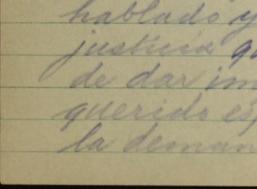 hablado y
justicia q
de dar im
querido es
la deman